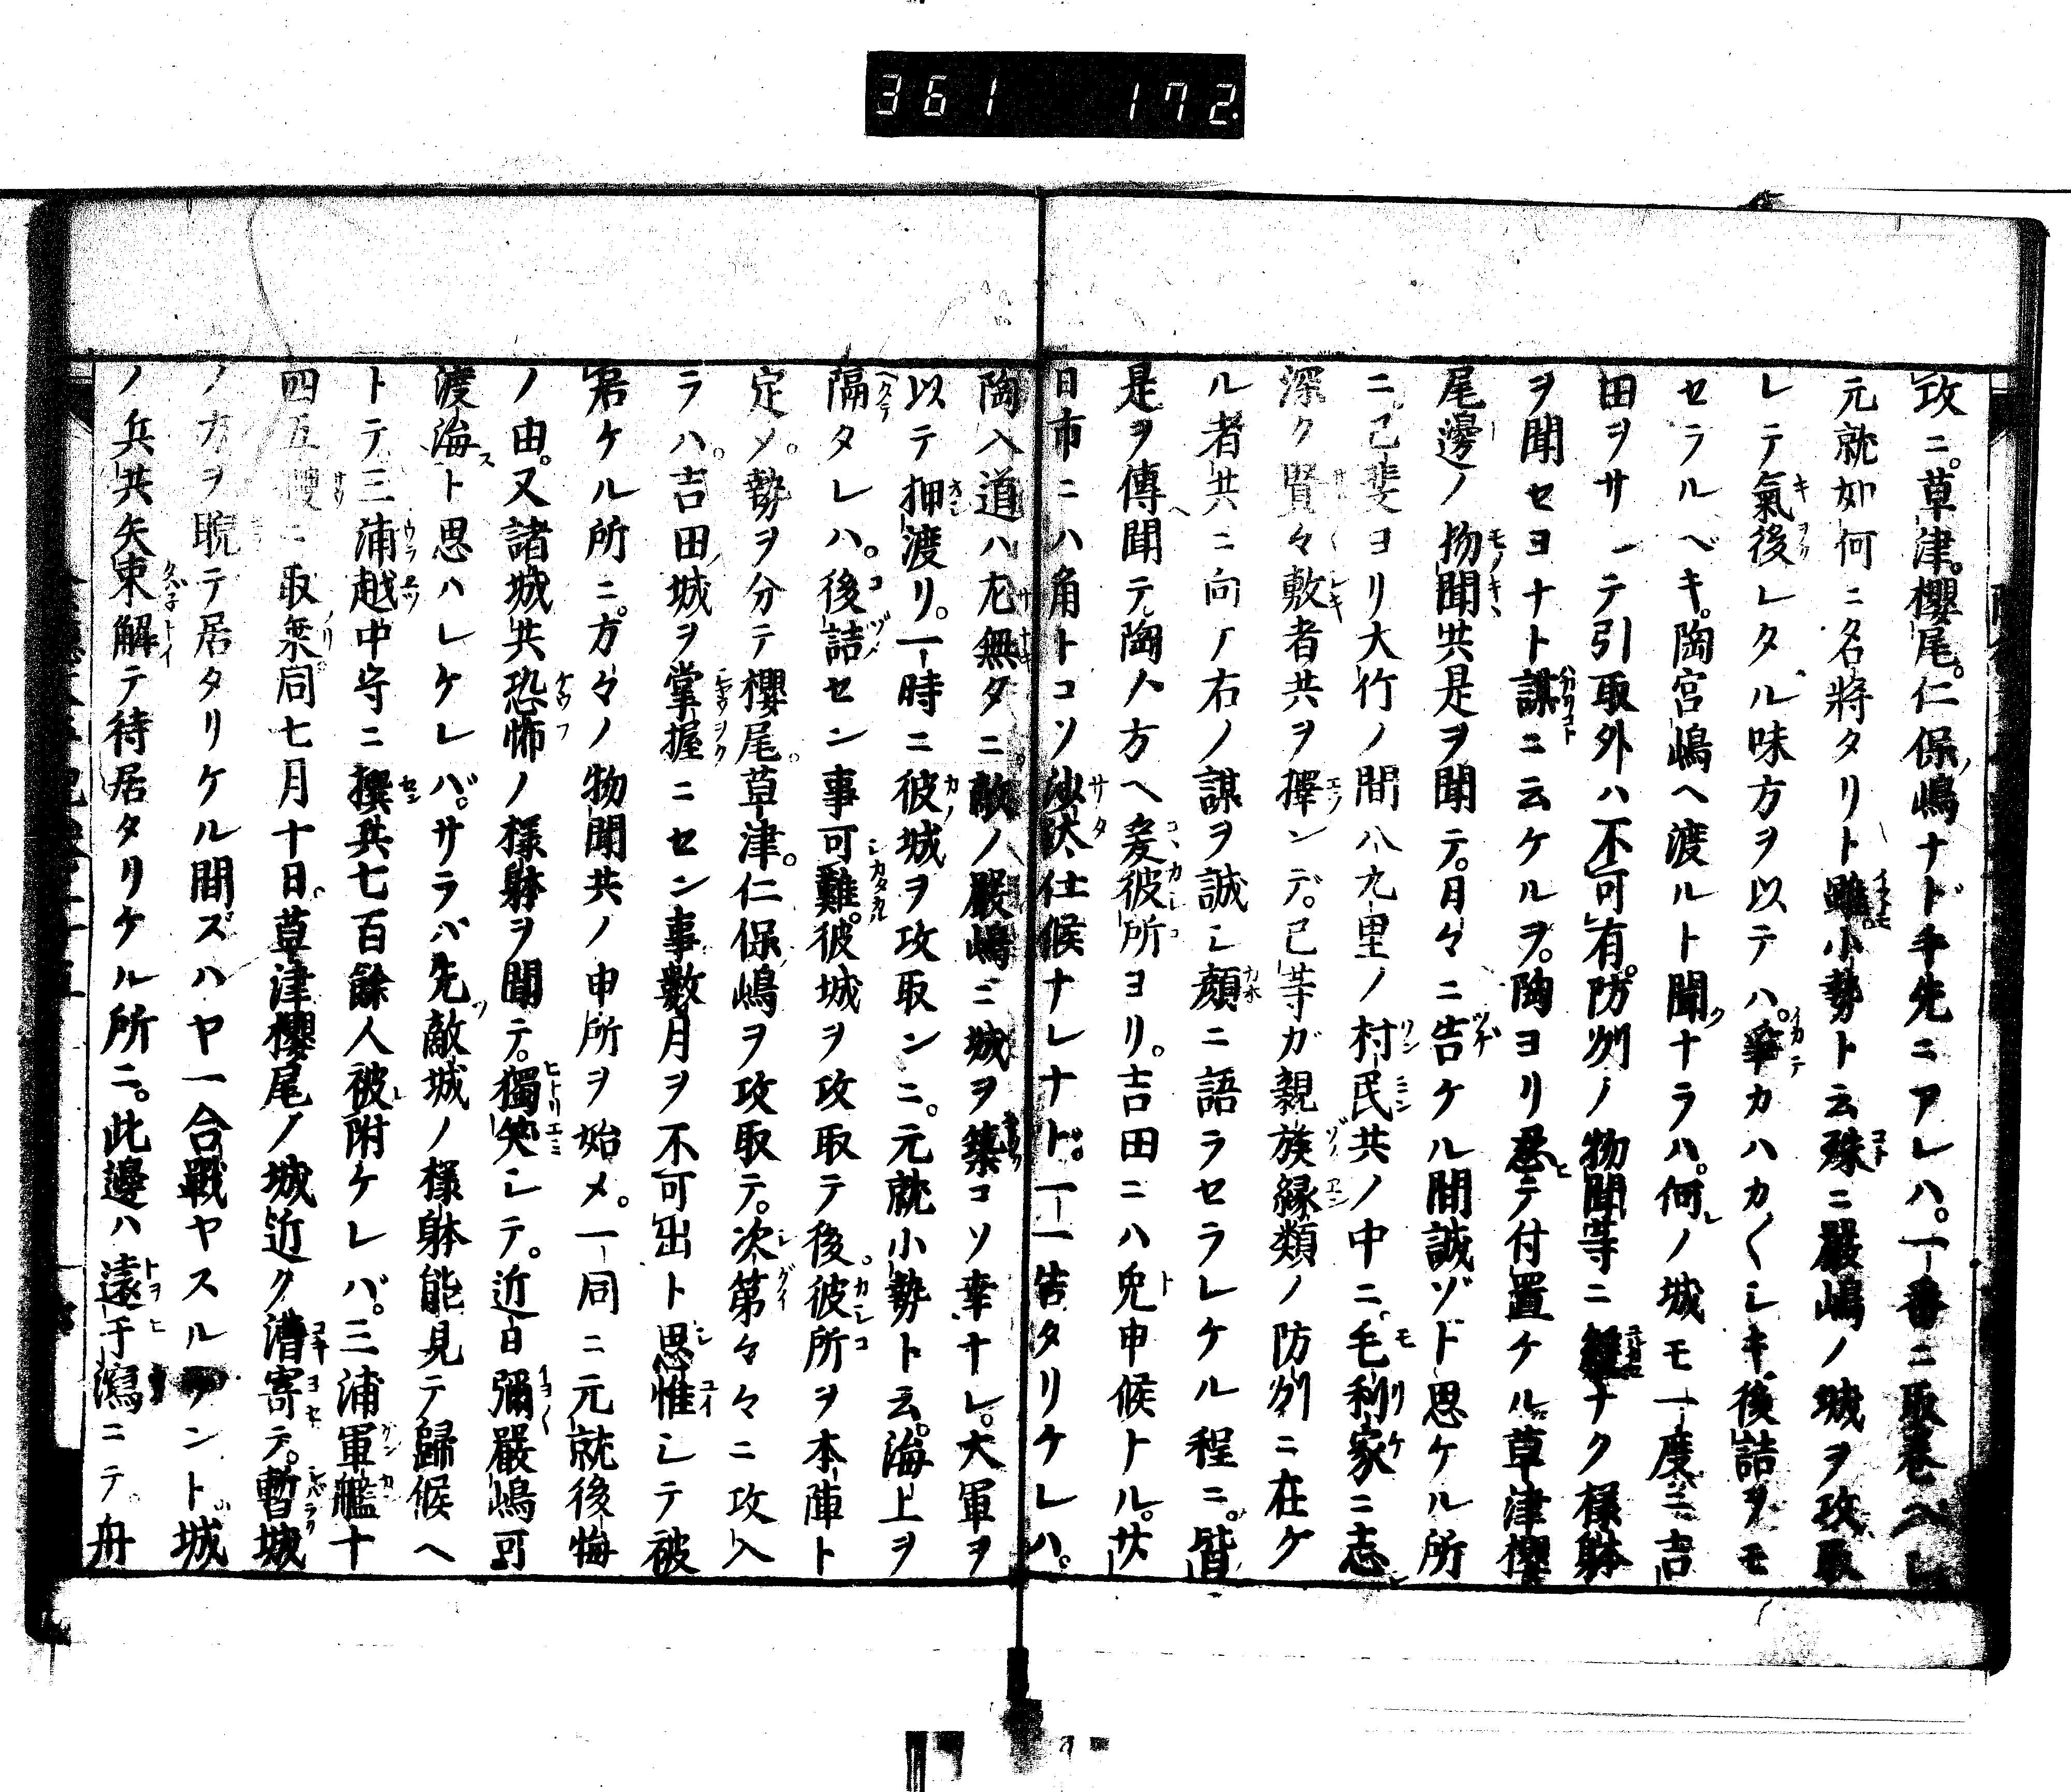 361 172.
攻ニ。草津。櫻尾。仁保嶋ナド手先ニアレハ。一番ニ取巻ヘシ
元就如何ニ名將タリト雖小勢ト云殊ニ嚴嶋ノ城ヲ攻取
レテ氣後レタル味方ヲ以テハ。爭カハカ〱シキ後詰ヲモ
セラルベキ。陶宮嶋ヘ渡ルト聞ナラハ。何ノ城モ一度ニ吉
田ヲサシテ引取外ハ不可有。防州ノ物聞等ニ ナク様躰
ヲ聞セヨナト謀ニ云ケルヲ。陶ヨリ忍テ付置ケル草津櫻
尾邊ノ物聞共是ヲ聞テ。日々ニ告ケル間誠ゾト思ケル所
ニ。己斐ヨリ大竹ノ間八九里ノ村民共ノ中ニ。毛利家ニ志
深ク賢々敷者共ヲ擇ンデ。己等ガ親族縁類ノ防州ニ在ケ
ル者共ニ向ノ右ノ謀ヲ誠シ顔ニ語ラセラレケル程ニ。皆
是ヲ傳聞テ陶人方ヘ爰彼所ヨリ。吉田ニハ兎申候トル。廿
日市ニハ角トコソ沙汰仕候ナレナド。一一告タリケレハ。
陶入道ハ左無タニ。敵ノ嚴嶋ニ城ヲ築コソ幸ナレ。大軍ヲ
以テ押渡リ。一時ニ彼城ヲ攻取ンニ。元就小勢ト云。海上ヲ
隔タレハ。後詰セン事可難。彼城ヲ攻取テ後。彼所ヲ本陣ト
定メ。勢ヲ分テ櫻尾。草津。仁保嶋ヲ攻取テ。次第々々ニ攻入
ラハ。吉田城ヲ掌握ニセン事數月ヲ不可出ト思惟シテ被
居ケル所ニ。方々ノ物聞共ノ申所ヲ始メ。一同ニ元就後悔
ノ由。又諸城共恐怖ノ様躰ヲ聞テ。獨笑シテ。近日彌嚴嶋可
渡海ト思ハレケレバ。サラバ先敵城ノ様躰能見テ歸候ヘ
トテ三浦越中守ニ撰兵七百餘人被附ケレバ。三浦軍艦十
四五艘ニ取乗同七月十日。草津櫻尾ノ城近ク漕寄テ。暫城
ノ方ヲ睨テ居タリケル間ズハヤ一合戰ヤスルラント。城
ノ兵共矢束解テ待居タリケル所ニ。此邊ハ遠干瀉ニテ。舟